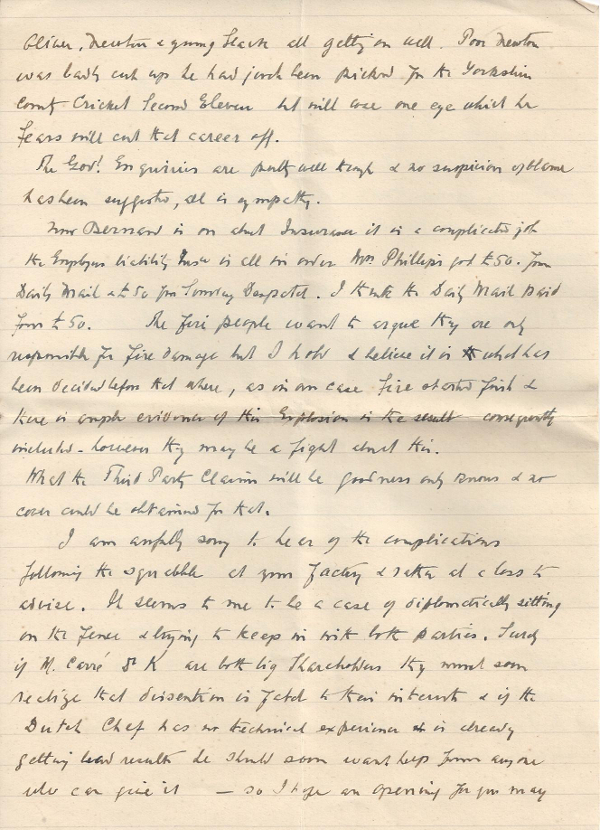 Oliver, Newton & young Hawk all getting on well. Poor Newton
was badly cut up he had just been picked for the Yorkshire
County Cricket Second Eleven but will lose one eye which he
fears will cut that career off.
The Govt Enquiries are partly well though & no suspicion of blame
has been suggested, all is sympathy.
Now Bernard is on about Insurance it is a complicated job
the Employers Liability Insce is all in order Mrs Phillips got £50. from
Daily Mail & £50 from Sunday Despatch. I think the Daily Mail paid
four £50. The fire people want to argue they are only
responsible for fire damage but I hold & believe it is what has
been decided before that where, as in our case Fire started first &
there is ample evidence of this Explosion is the result consequently
included - however they may be a fight about this.
What the Third Party Claims will be goodness only knows & no
cover could be obtained for that.
I am awfully sorry to hear of the complications
following the squabble at your Factory & rather at a loss to
advise. It seems to me to be a case of diplomatically sitting
on the fense & trying to keep in with both parties. Surely
if M. Carré & K are both big Shareholders they must soon
realize that dissention is fatal to their interests & if the
Dutch Chef has no technical experience & is already
getting bad results he should soon want help from anyone
who can give it — so I hope an opening for you may